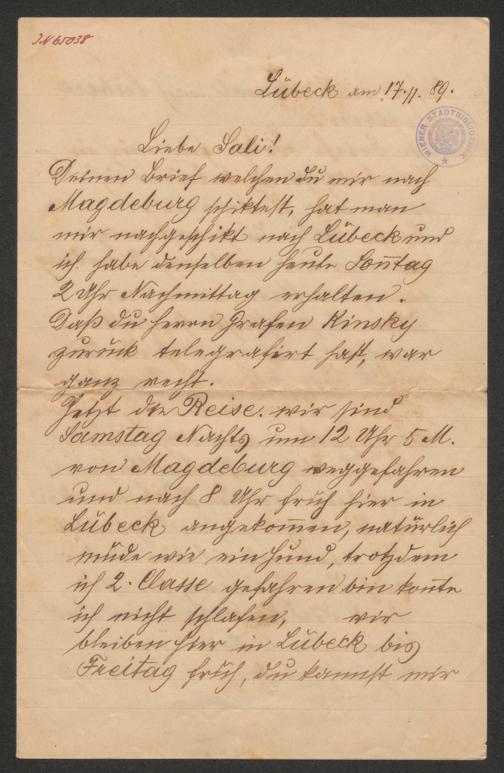 JN 65038
Lübeck am 17./11. 89.
WIENER STADTBIBLIOTHEK
Liebe Sali!
Deinen Brief welchen du mir nach
Magdeburg schiktest, hat man
mir nachgeschikt nach Lübeck und
ich habe denselben heute Soñtag
2 Uhr Nachmittag erhalten.
Daß du Herrn Grafen Kinsky
zurück telegrafirt hast, war
ganz recht.
Jetzt die Reise. wir sind
Samstag Nachts um 12 Uhr 5 M.
von Magdeburg weggefahren
und nach 8 Uhr früh hier in
Lübeck angekom̄en, natürlich
müde wie ein Hund, trotzdem
ich 2. Classe gefahren bin koñte
ich nicht schlafen, wir
bleiben hier in Lübeck bis
Freitag früh, du kannst mir